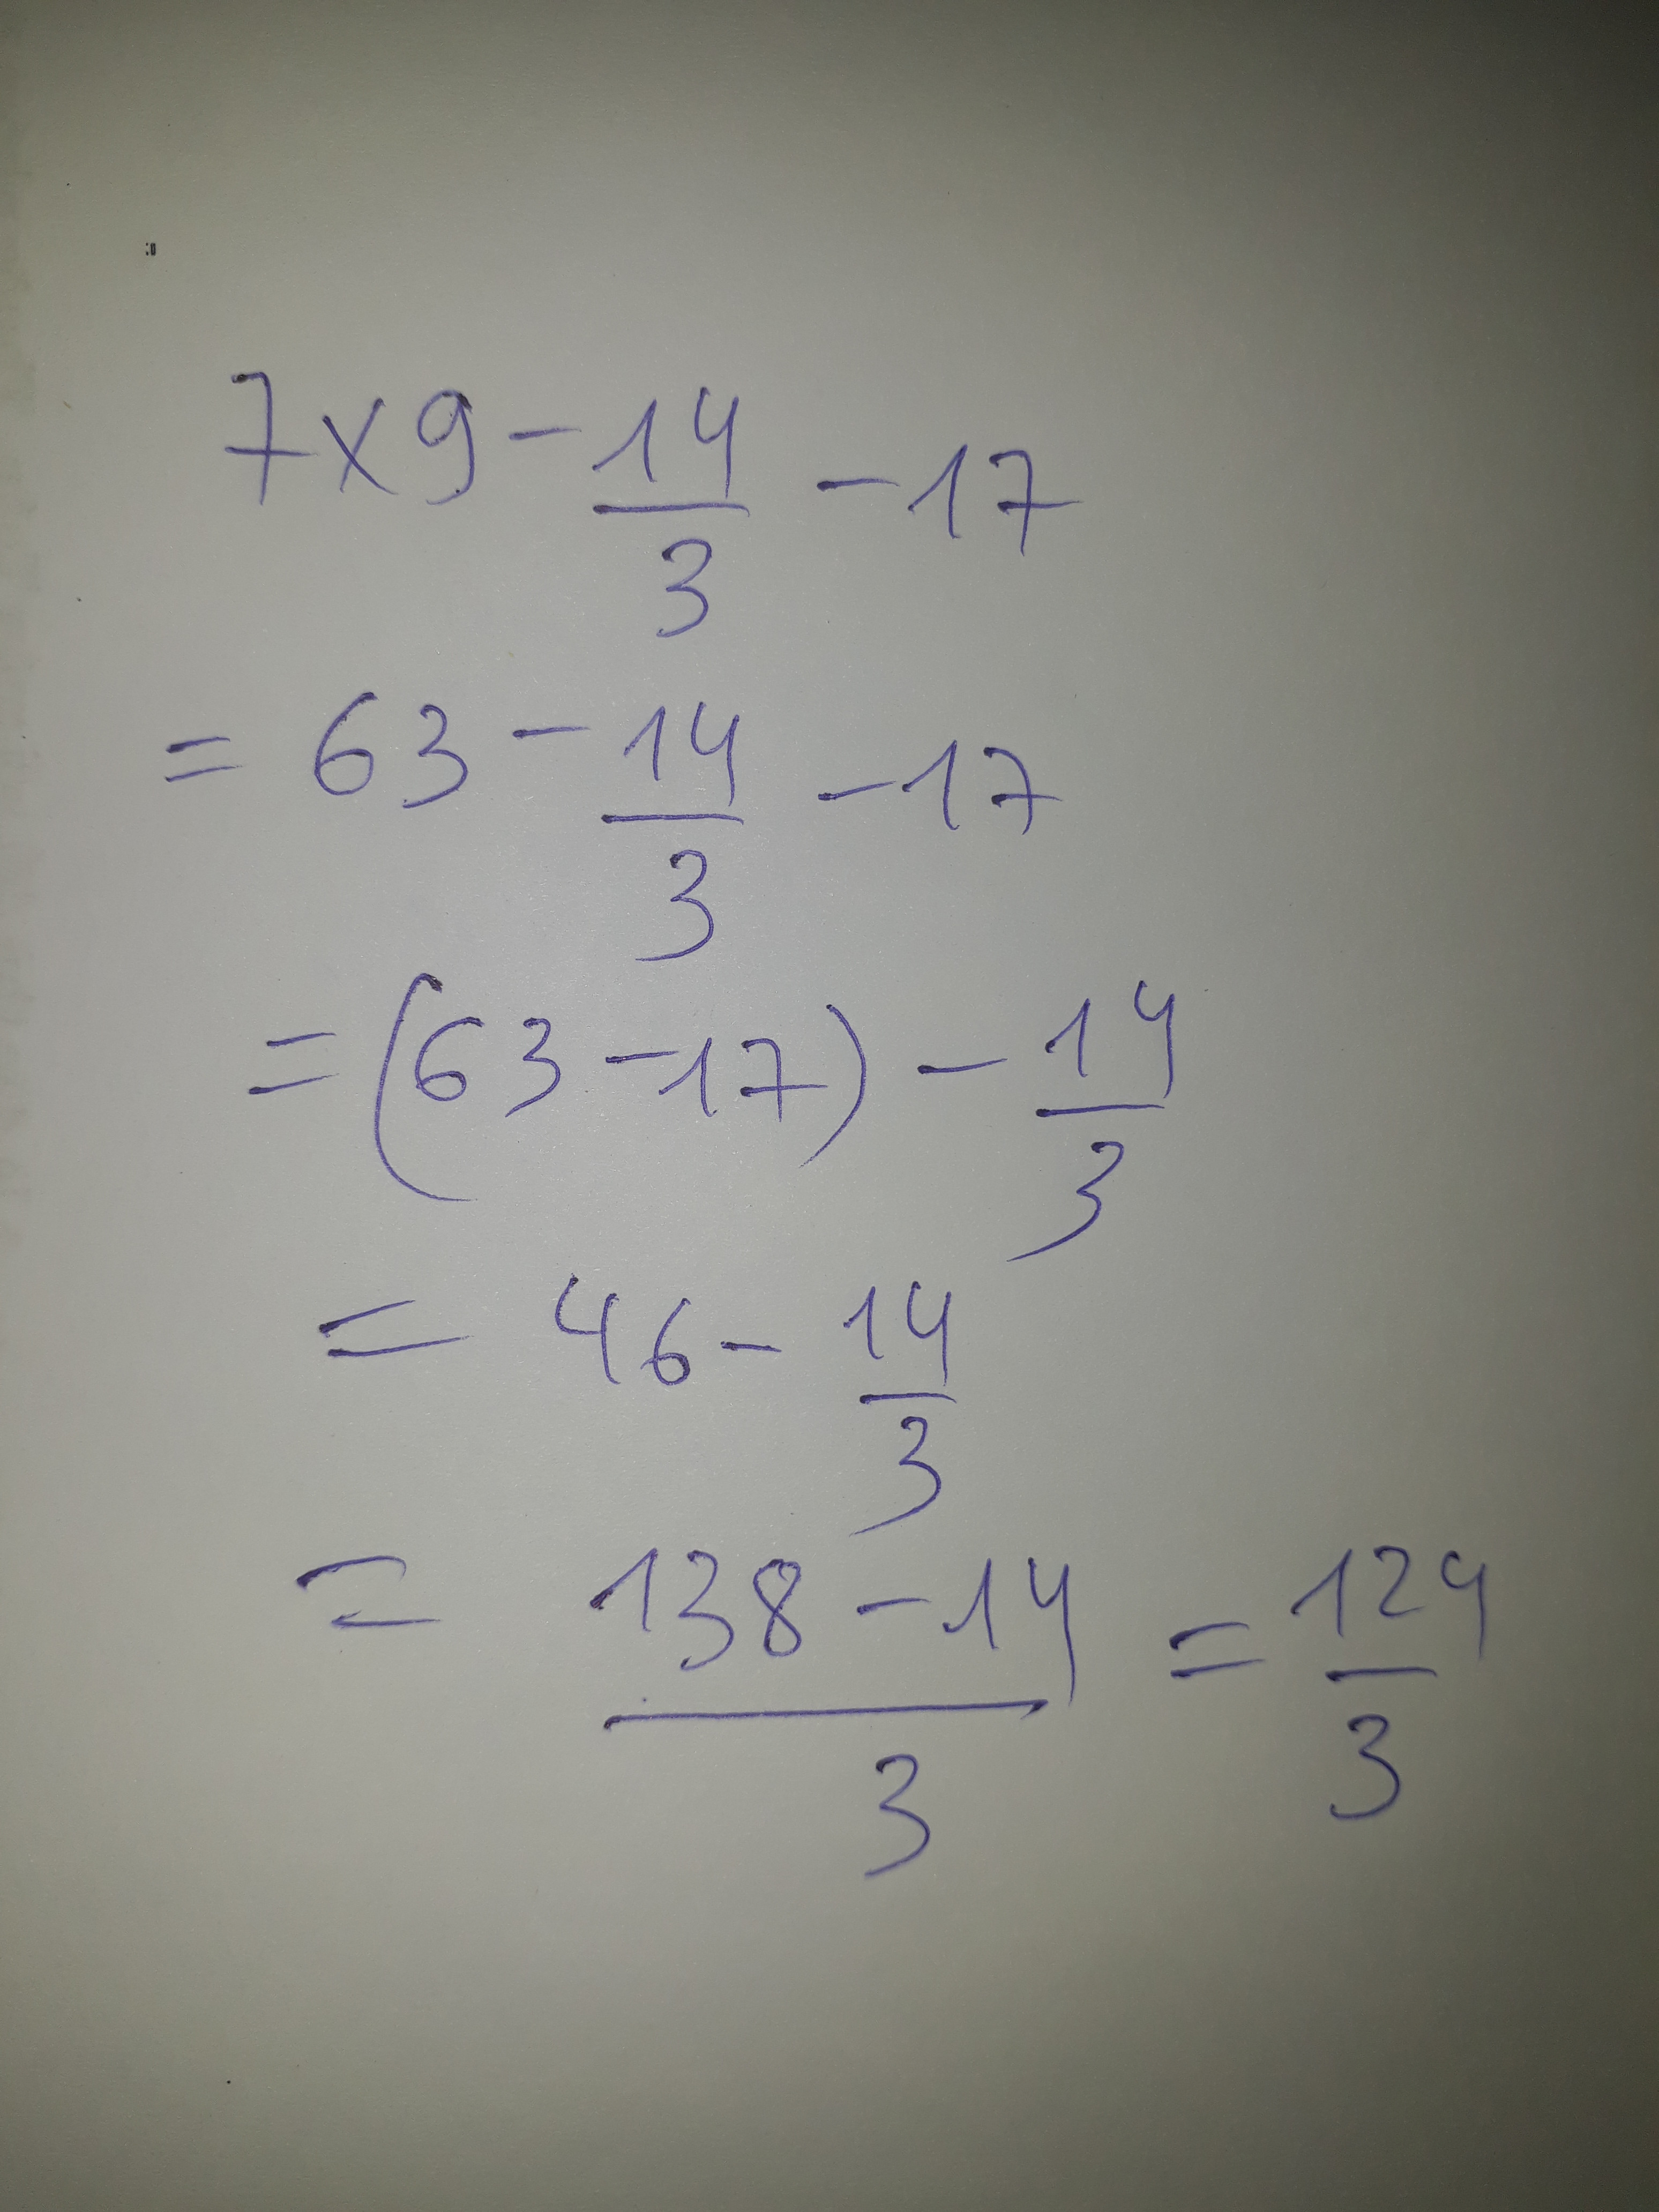 7x9 - 14/3 - 17
= 63 - 14/3 - 17
= (63 - 17) - 14/3
= 46 - 14/3
= 138 - 14/3 = 124/3